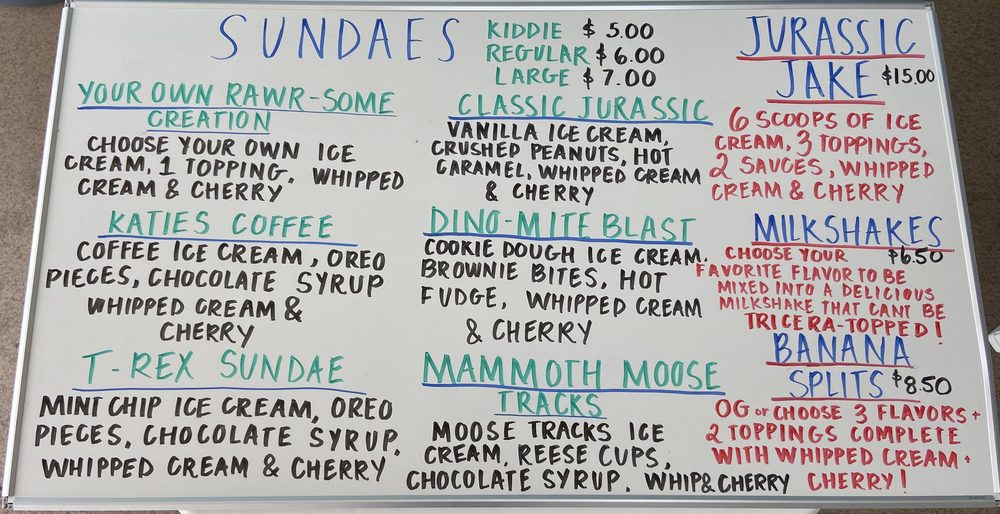 SUNDAES
KIDDIE $ 5.00
REGULAR $ 6.00
LARGE $ 7.00
YOUR OWN RAWR-SOME
CREATION
CHOOSE YOUR OWN ICE
CREAM, 1 TOPPING, WHIPPED
CREAM & CHERRY
KATIES COFFEE
COFFEE ICE CREAM, OREO
PIECES, CHOCOLATE SYRUP
WHIPPED CREAM &
CHERRY
T-REX SUNDAE
MINT CHIP ICE CREAM, OREO
PIECES, CHOCOLATE SYRUP,
WHIPPED CREAM & CHERRY
CLASSIC JURASSIC
VANILLA ICE CREAM,
CRUSHED PEANUTS, HOT
CARAMEL, WHIPPED CREAM
& CHERRY
DINO-MITE BLAST
COOKIE DOUGH ICE CREAM,
BROWNIE BITES, HOT
FUDGE, WHIPPED CREAM
& CHERRY
MAMMOTH MOOSE
TRACKS
MOOSE TRACKS ICE
CREAM, REESE CUPS,
CHOCOLATE SYRUP, WHIP & CHERRY
JURASSIC
JAKE $15.00
6 SCOOPS OF ICE
CREAM, 3 TOPPINGS,
2 SAUCES, WHIPPED
CREAM & CHERRY
MILKSHAKES
CHOOSE YOUR $6.50
FAVORITE FLAVOR TO BE
MIXED INTO A DELICIOUS
MILKSHAKE THAT CANT BE
TRICERA-TOPPED!
BANANA
SPLITS $8.50
OG or CHOOSE 3 FLAVORS +
2 TOPPINGS COMPLETE
WITH WHIPPED CREAM +
CHERRY!